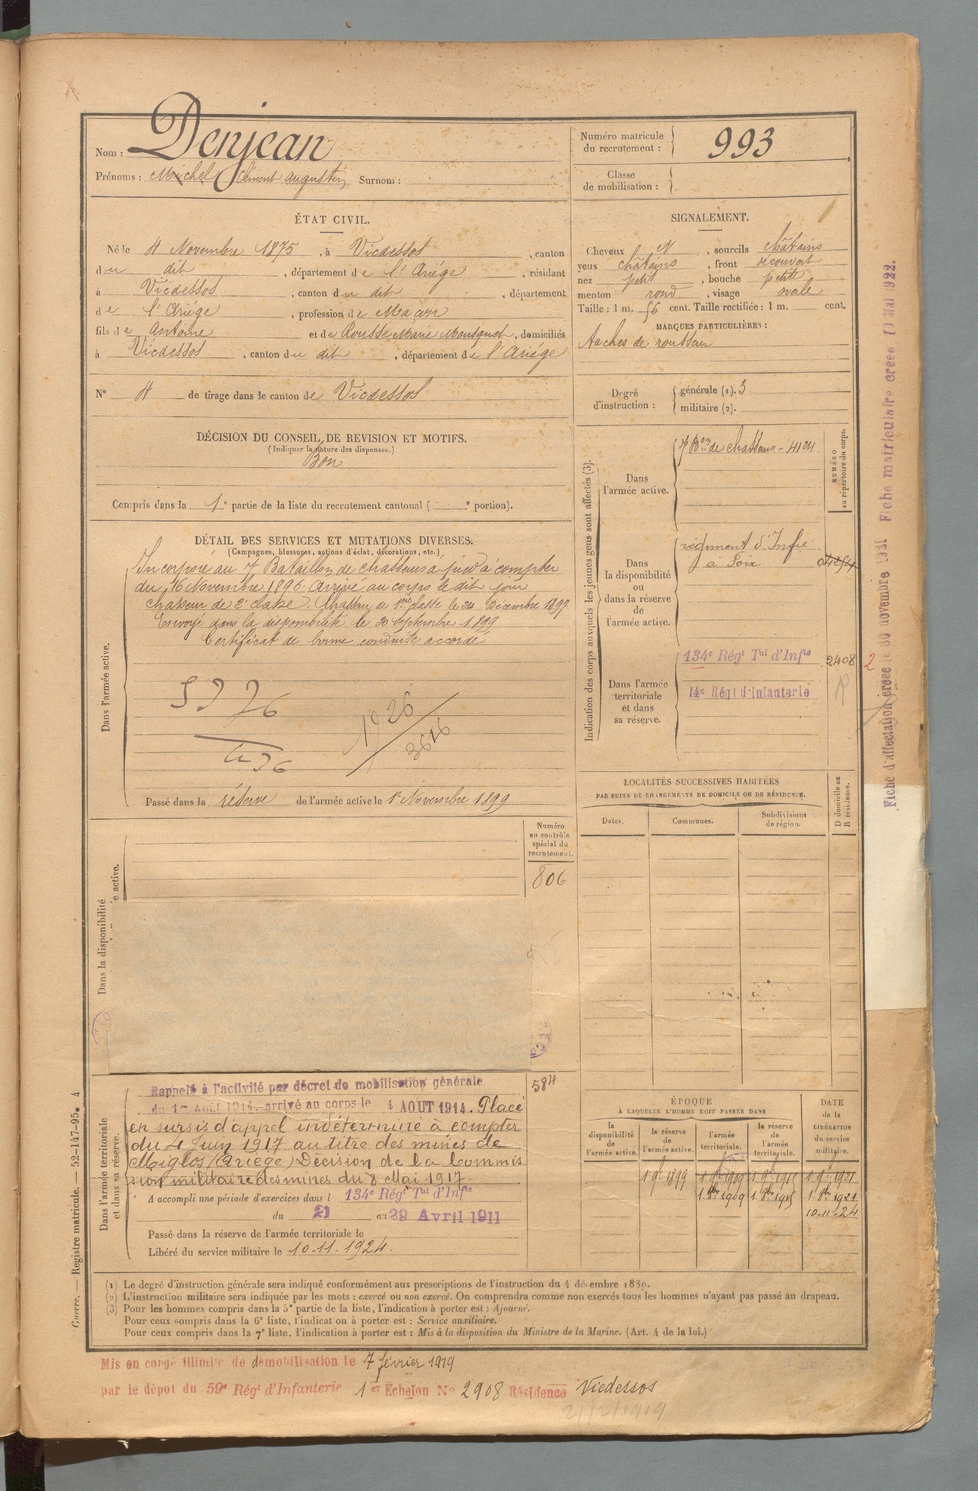 Nom : Denjean
Prénoms : Michel Clément Augustin Surnom :
Numéro matricule du recrutement : 993
Classe de mobilisation :
ÉTAT CIVIL.
Né le 4 Novembre 1875, à Vicdessos, canton
du dit, département de l'Ariége, résidant
à Vicdessos, canton du dit, département
de l'Ariége, profession de Maçon
fils de Antoine et de Rousse Marie Mousquet, domiciliés
à Vicdessos, canton du dit, département de l'Ariége
N° 4 de tirage dans le canton de Vicdessos
SIGNALEMENT.
Cheveux N, sourcils châtains
yeux châtains, front découvert
nez petit, bouche petite
menton rond, visage ovale
Taille : 1 m. 56 cent. Taille rectifiée : 1 m. cent.
MARQUES PARTICULIÈRES :
Taches de rousseur
Degré d'instruction : générale (1). 3
militaire (2).
DÉCISION DU CONSEIL DE REVISION ET MOTIFS.
(Indiquer la nature des dispenses.)
Bon
Compris dans la 1e partie de la liste du recrutement cantonal ( e portion).
DÉTAIL DES SERVICES ET MUTATIONS DIVERSES.
(Campagnes, blessures, actions d'éclat, décorations, etc.)
Dans l'armée active.
Incorporé au 7 Bataillon de chasseurs à pied à compter
du 16 Novembre 1896. Arrivé au corps le dit jour
chasseur de 2e classe. Chasseur de 1ère classe le 24 Décembre 1897.
Envoyé dans la disponibilité le 20 septembre 1899
Certificat de bonne conduite accordé
1926
3616
Passé dans la réserve de l'armée active le 1er Novembre 1899
Indication des corps auxquels les jeunes gens sont affectés (3).
Dans l'armée active.
7 Bon de chasseurs - 4124
NUMÉRO au répertoire du corps.
Dans la disponibilité ou dans la réserve de l'armée active.
régiment d'Infie
à Foix
Dans l'armée territoriale et dans sa réserve.
134e Régt Tal d'Infie 2408
14e Régt d'Infanterie
LOCALITÉS SUCCESSIVES HABITÉES
PAR SUITE DE CHANGEMENTS DE DOMICILE OU DE RÉSIDENCE.
D domicile ou R résidence.
Dates. Communes. Subdivisions de région.
Dans la disponibilité
e active.
Numéro au contrôle spécial du recrutement.
806
584
Dans l'armée territoriale et dans sa réserve.
Rappelé à l'activité par décret de mobilisation générale
du 1er Août 1914. arrivé au corps le 4 AOUT 1914. Placé
en sursis d'appel indéterminé à compter
du 4 Juin 1917 au titre des mines de
Miglos (Ariège) Décision de la Commis
sion militaire des mines du 8 Mai 1917.
A accompli une période d'exercices dans l 134e Régt Tal d'Infie
du 21 au 29 Avril 1911
Passé dans la réserve de l'armée territoriale le
Libéré du service militaire le 10-11-1924.
ÉPOQUE
À LAQUELLE L'HOMME DOIT PASSER DANS
la disponibilité de l'armée active. la réserve de l'armée active. l'armée territoriale. la réserve de l'armée territoriale.
DATE de la LIBÉRATION du service militaire.
1 9bre 1899 1 9bre 1909 1 9bre 1915 1 9bre 1921
1 8bre 1909 1 8bre 1915 1 8bre 1921
10-11-24
(1) Le degré d'instruction générale sera indiqué conformément aux prescriptions de l'instruction du 4 décembre 1889.
(2) L'instruction militaire sera indiquée par les mots : exercé ou non exercé. On comprendra comme non exercés tous les hommes n'ayant pas passé au drapeau.
(3) Pour les hommes compris dans la 5e partie de la liste, l'indication à porter est : Ajourné.
Pour ceux compris dans la 6e liste, l'indication à porter est : Service auxiliaire.
Pour ceux compris dans la 7e liste, l'indication à porter est : Mis à la disposition du Ministre de la Marine. (Art. 4 de la loi.)
Mis en congé illimité de démobilisation le 7 février 1919
par le dépot du 59e Régt d'Infanterie 1er Echelon N° 2908 Résidence Vicdessos
21/2/1919
Guerre. — Registre matricule. — 52-147-95. 4
Fiche d'affectation créée le 30 novembre 1921 Fiche matriculaire créée 10 Mai 1922.